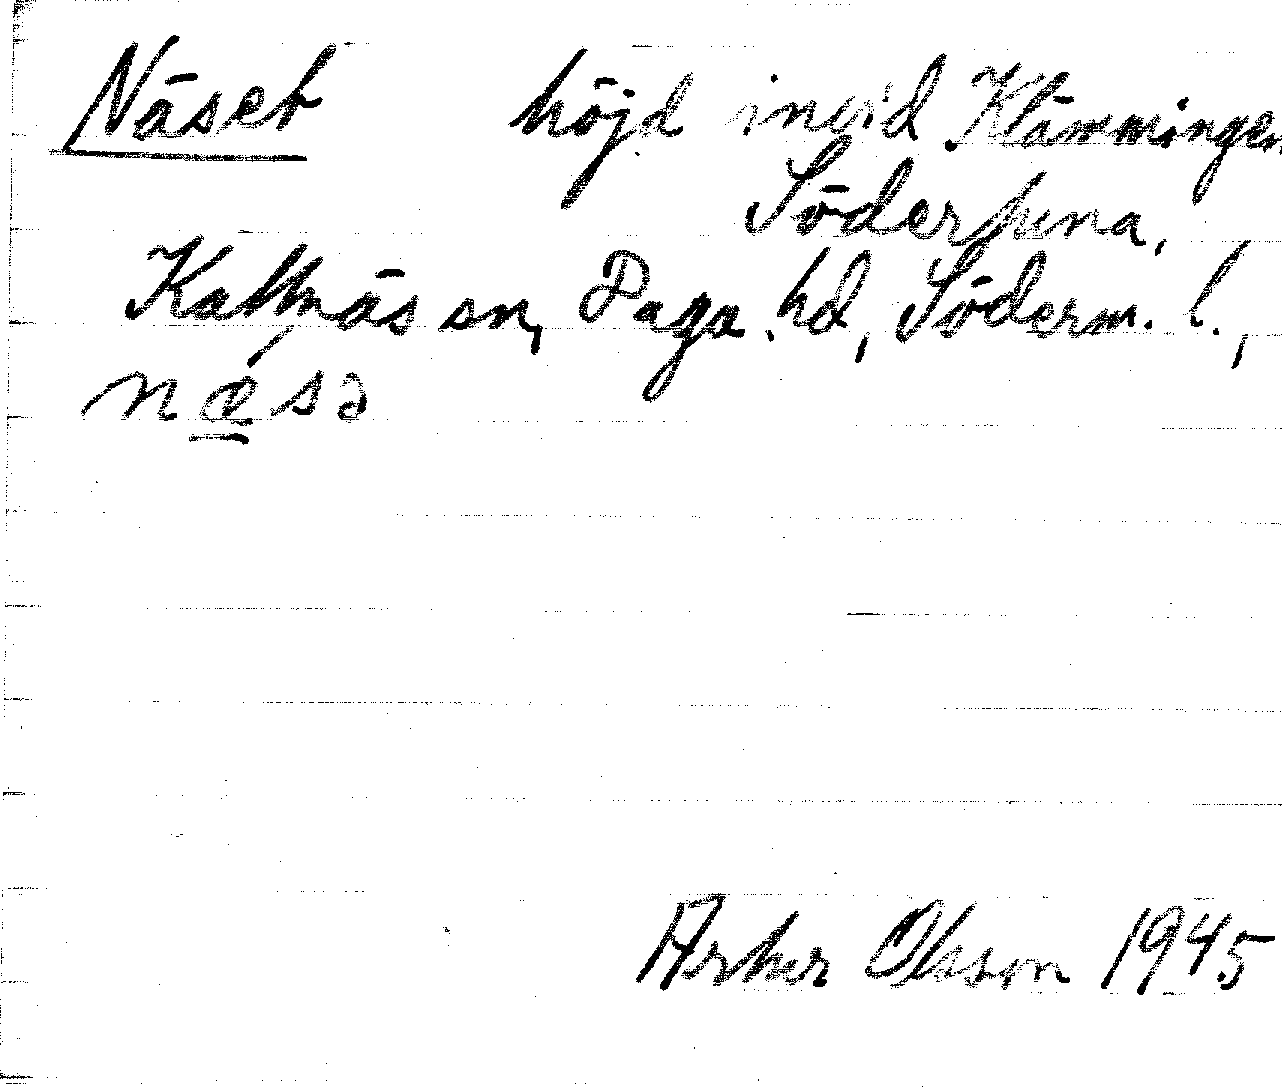 Näset höjd invid Klämmingen
Södertuna,
Kattnäs sn, Daga hd, Söderm. l.,
nǽ̱sə
Artur Olsson 1945